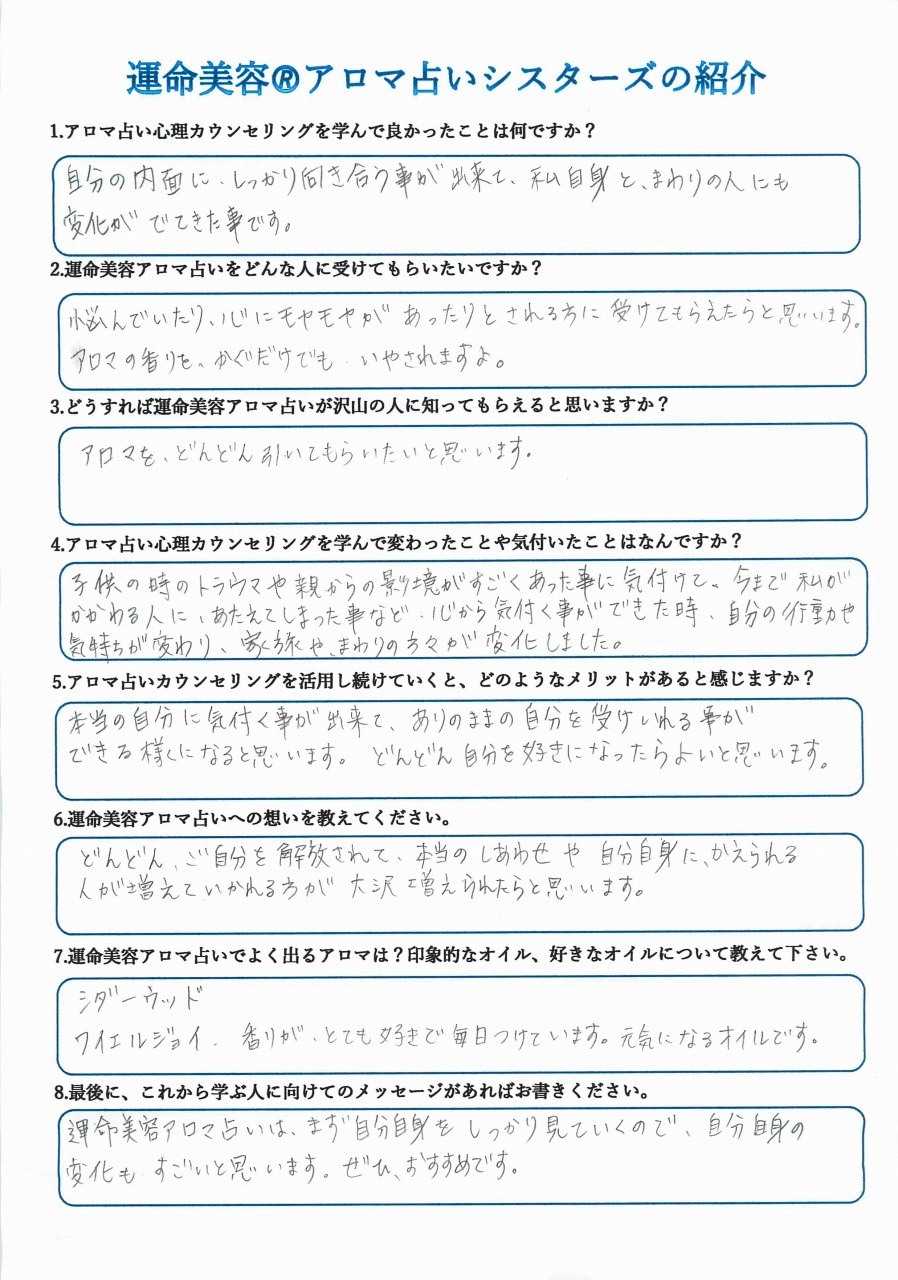 運命美容®アロマ占いシスターズの紹介
1.アロマ占い心理カウンセリングを学んで良かったことは何ですか？
自分の内面に、しっかり向き合う事が出来て、私自身と、まわりの人にも
変化がでてきた事です。
2.運命美容アロマ占いをどんな人に受けてもらいたいですか？
悩んでいたり、心にモヤモヤがあったりとされる方に受けてもらえたらと思います。
アロマの香りを、かぐだけでも、いやされますよ。
3.どうすれば運命美容アロマ占いが沢山の人に知ってもらえると思いますか？
アロマを、どんどん引いてもらいたいと思います。
4.アロマ占い心理カウンセリングを学んで変わったことや気付いたことはなんですか？
子供の時のトラウマや親からの影境がすごくあった事に気付けて、今まで私が
かかわる人に、あたえてしまった事など、心から気付く事ができた時、自分の行動や
気持ちが変わり、家族や、まわりの方々が変化しました。
5.アロマ占いカウンセリングを活用し続けていくと、どのようなメリットがあると感じますか？
本当の自分に気付く事が出来て、ありのままの自分を受けいれる事が
できる様になると思います。どんどん自分を好きになったらよいと思います。
6.運命美容アロマ占いへの想いを教えてください。
どんどん、ご自分を解放されて、本当のしあわせや自分自身に、かえられる
人が増えていかれる方が大沢増えられたらと思います。
7.運命美容アロマ占いでよく出るアロマは？印象的なオイル、好きなオイルについて教えて下さい。
シダーウッド
ワイエルジョイ、香りが、とても好きで毎日つけています。元気になるオイルです。
8.最後に、これから学ぶ人に向けてのメッセージがあればお書きください。
運命美容アロマ占いは、まず自分自身をしっかり見ていくので、自分自身の
変化もすごいと思います。ぜひ、おすすめです。